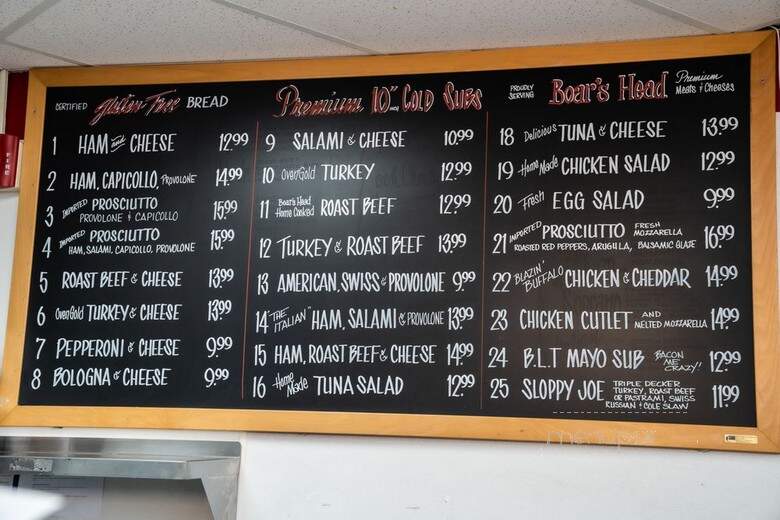 CERTIFIED Gluten-Free BREAD
1 HAM and CHEESE 12.99
2 HAM, CAPICOLLO, PROVOLONE 14.99
3 IMPORTED PROSCIUTTO 15.99
PROVOLONE & CAPICOLLO
4 IMPORTED PROSCIUTTO 15.99
HAM, SALAMI, CAPICOLLO, PROVOLONE
5 ROAST BEEF & CHEESE 13.99
6 OvenGold TURKEY & CHEESE 13.99
7 PEPPERONI & CHEESE 9.99
8 BOLOGNA & CHEESE 9.99
Premium 10" INCH COLD SUBS
9 SALAMI & CHEESE 10.99
10 OvenGold TURKEY 12.99
11 Boar's Head Home Cooked ROAST BEEF 12.99
12 TURKEY & ROAST BEEF 13.99
13 AMERICAN, SWISS & PROVOLONE 9.99
14 "THE ITALIAN" HAM, SALAMI & PROVOLONE 13.99
15 HAM, ROAST BEEF & CHEESE 14.99
16 Home Made TUNA SALAD 12.99
PROUDLY SERVING Boar's Head Premium Meats & Cheeses
18 Delicious TUNA & CHEESE 13.99
19 Home Made CHICKEN SALAD 12.99
20 Fresh EGG SALAD 9.99
21 IMPORTED PROSCIUTTO FRESH MOZZARELLA 16.99
ROASTED RED PEPPERS, ARUGULA, BALSAMIC GLAZE
22 BLAZIN' BUFFALO CHICKEN & CHEDDAR 14.99
23 CHICKEN CUTLET AND MELTED MOZZARELLA 14.99
24 B.L.T MAYO SUB BACON ME CRAZY! 12.99
25 SLOPPY JOE TRIPLE DECKER 11.99
TURKEY, ROAST BEEF
OR PASTRAMI, SWISS
RUSSIAN & COLE SLAW
FIRE